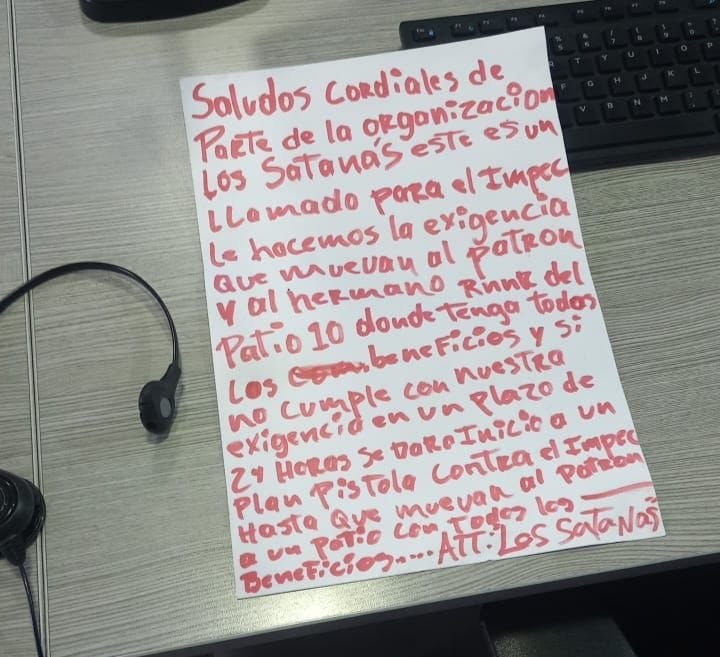 Saludos cordiales de
Parte de la organizacion
Los Satanás este es un
llamado para el Impec
Le hacemos la exigencia
que muevan al patron
y al hermano Runk del
Patio 10 donde tenga todos
Los beneficios y si
no cumple con nuestra
exigencia en un plazo de
24 Horas se dara Inicio a un
Plan Pistola contra el Impec
Hasta que muevan al Patron
a un Patio con todos los
Beneficios.... ATT: Los Satanas